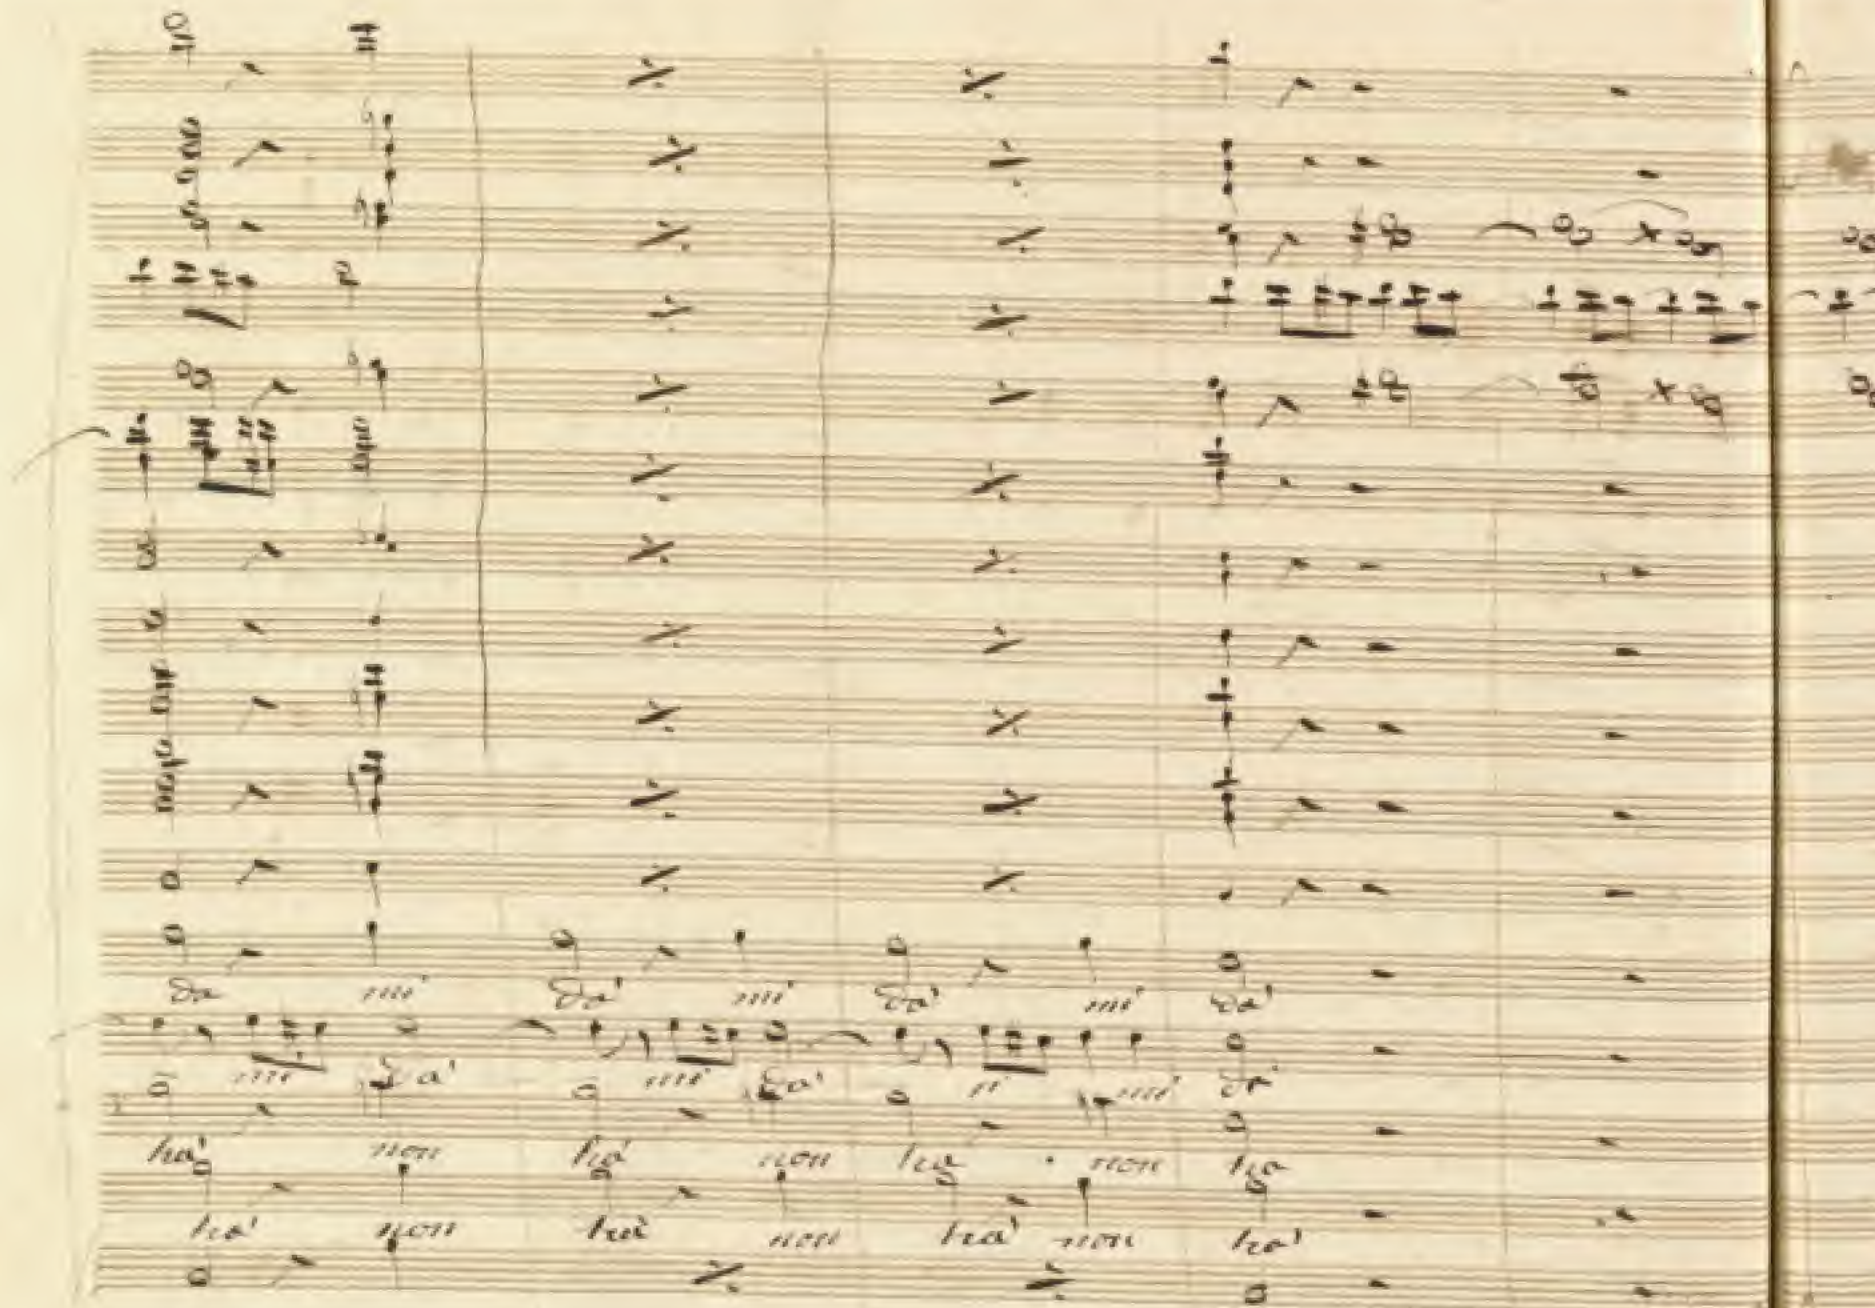 da mi da' mi da' mi da'
mi da' mi da' mi da'
ha' non ha non ha non ha
ha' non ha non ha' non ha'